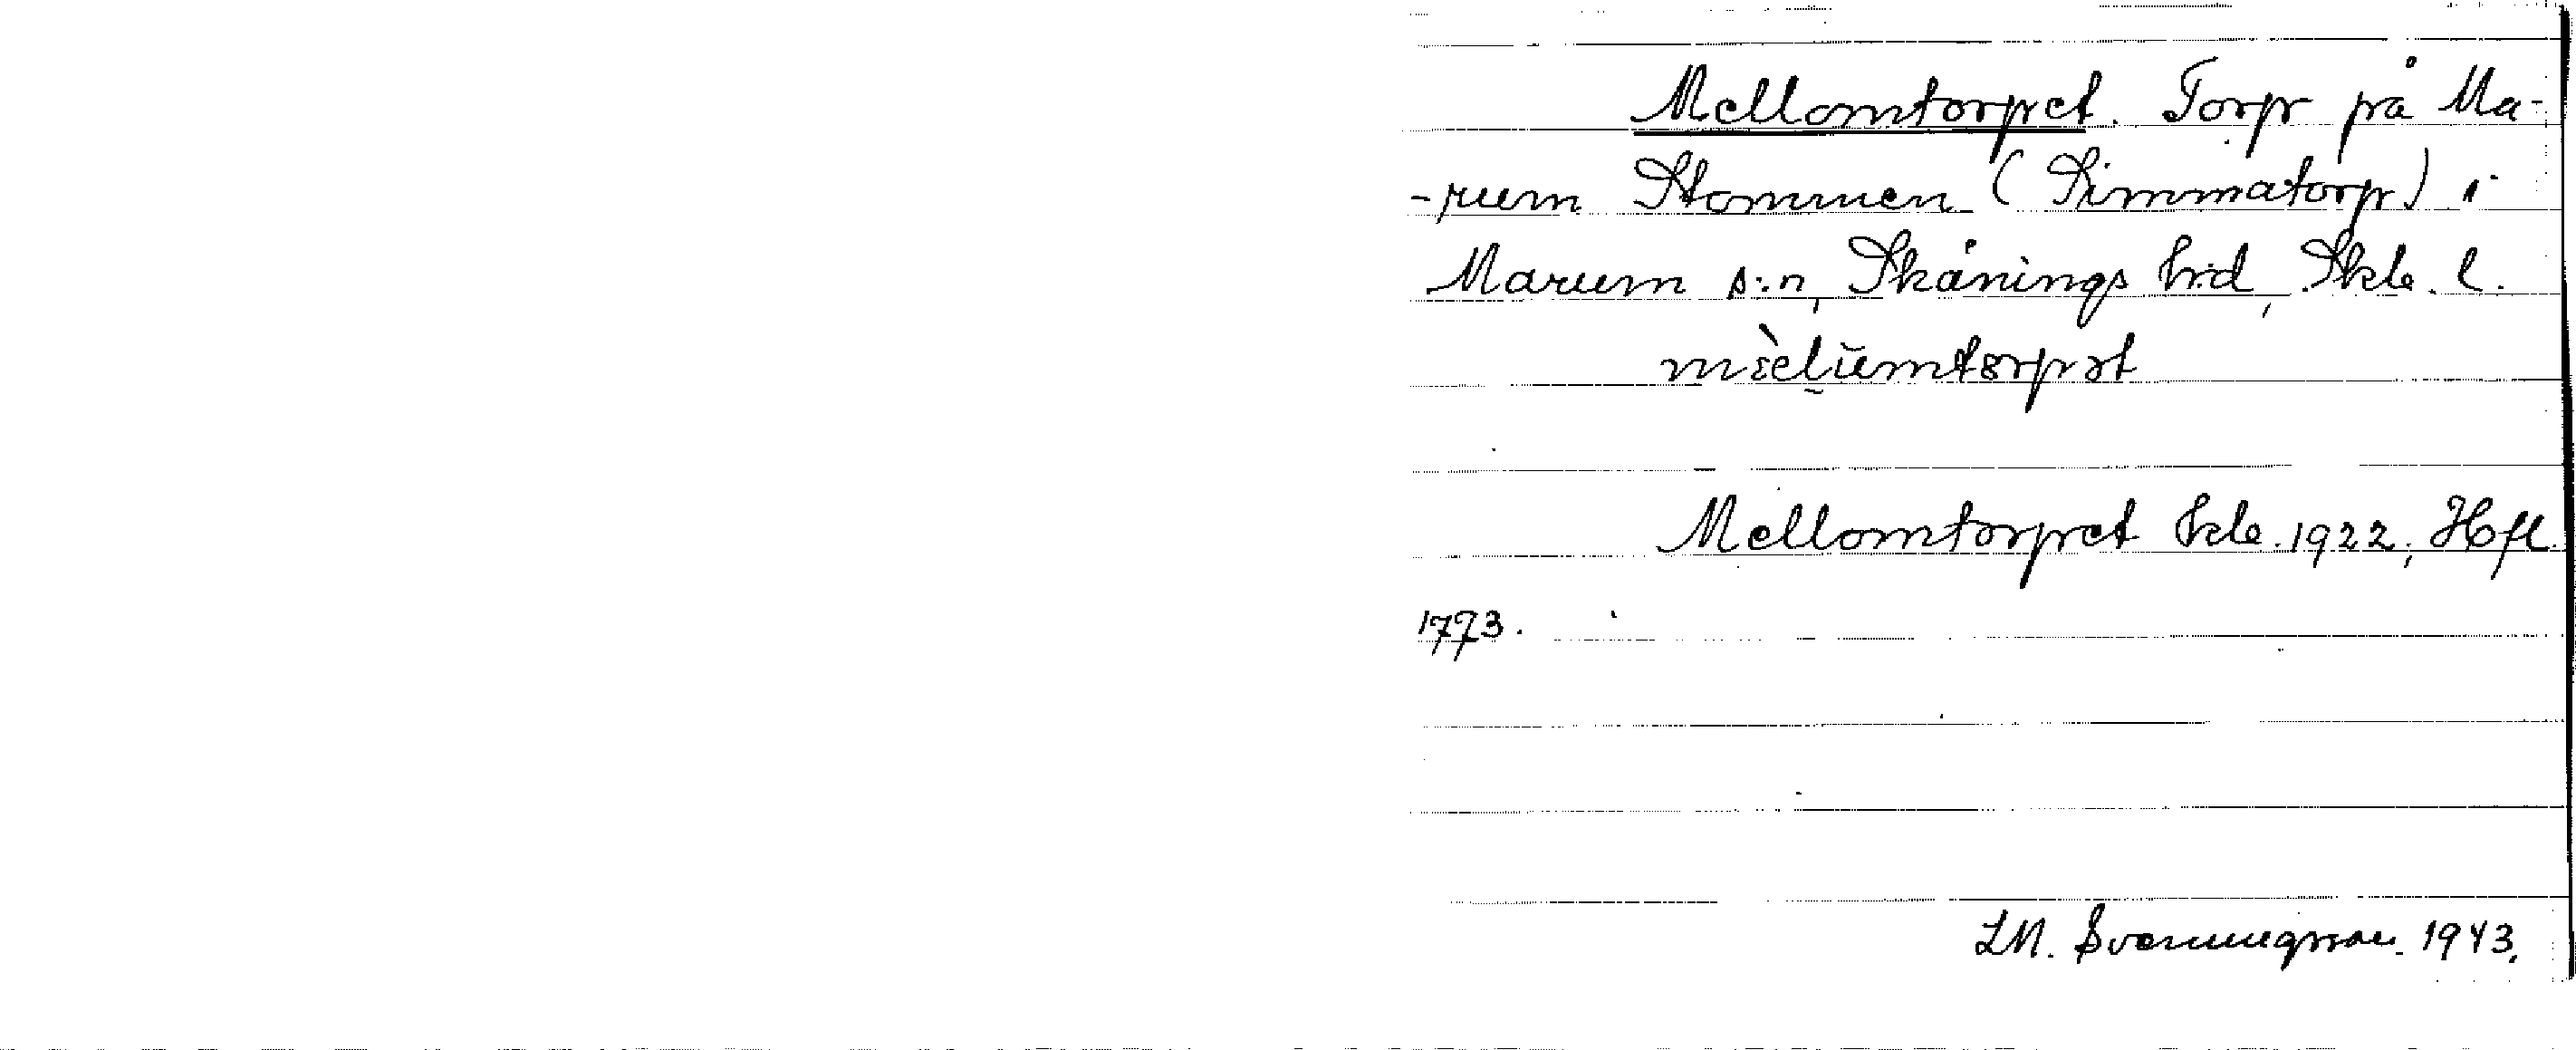 Mellomtorpet. Torp på Ma-
-rum Stommen (Simmatorp) i
Marum s:n, Skånings hd, Skb. l.
Mellomtorpet kb. 1922, Hfl
1793.
LM. Svenningsson. 1943.